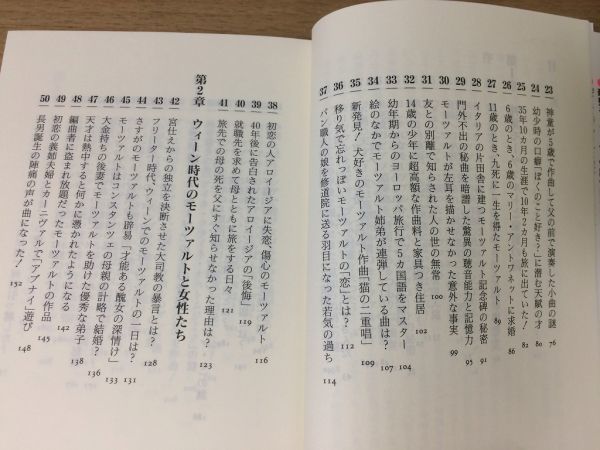 23 神童が5歳で作曲して父の前で演奏した小曲の謎 76
24 幼少時の口癖「ぼくのこと好き?」に潜む天賦の才 80
25 35年10カ月の生涯で10年2カ月も旅に出ていた! 82
26 6歳のとき、6歳のマリー・アントワネットに求婚 86
27 11歳のとき、九死に一生を得たモーツァルト 89
28 イタリアの片田舎に建つモーツァルト記念碑の秘密 91
29 門外不出の秘曲を暗譜した驚異の聴音能力と記憶力 95
30 モーツァルトが左耳を描かせなかった意外な事実 99
31 友との別離で知らされた人の世の無常 100
32 14歳の少年に超高額な作曲料と家具つき住居 102
33 幼年期からのヨーロッパ旅行で5カ国語をマスター 104
34 絵のなかでモーツァルト姉弟が連弾している曲は? 107
35 新発見! 犬好きのモーツァルト作曲「猫の二重唱」 109
36 移り気で忘れっぽいモーツァルトの「恋」とは? 112
37 パン職人の娘を修道院に送る羽目になった若気の過ち 114
38 初恋の人アロイージアに失恋、傷心のモーツァルト 116
39 40年後に告白されたアロイージアの「後悔」 119
40 就職先を求めて母とともに旅をする日々 121
41 旅先での母の死を父にすぐ知らせなかった理由は? 123
第2章 ウィーン時代のモーツァルトと女性たち
42 宮仕えからの独立を決断させた大司教の暴言とは?
43 フリーター時代、ウィーンでのモーツァルトの一日は? 128
44 さすがのモーツァルトも辟易「才能ある醜女の深情け」 131
45 モーツァルトはコンスタンツェの母親の計略で結婚? 133
46 大金持ちの後妻でモーツァルトを助けた優秀な弟子 136
47 天才は熱中すると何かに憑かれたようになる 138
48 編曲者に盗まれ放題だったモーツァルトの作品 145
49 初恋の義姉夫婦とカーニヴァルで「アブナイ」遊び 148
50 長男誕生の陣痛の声が曲になった! 152